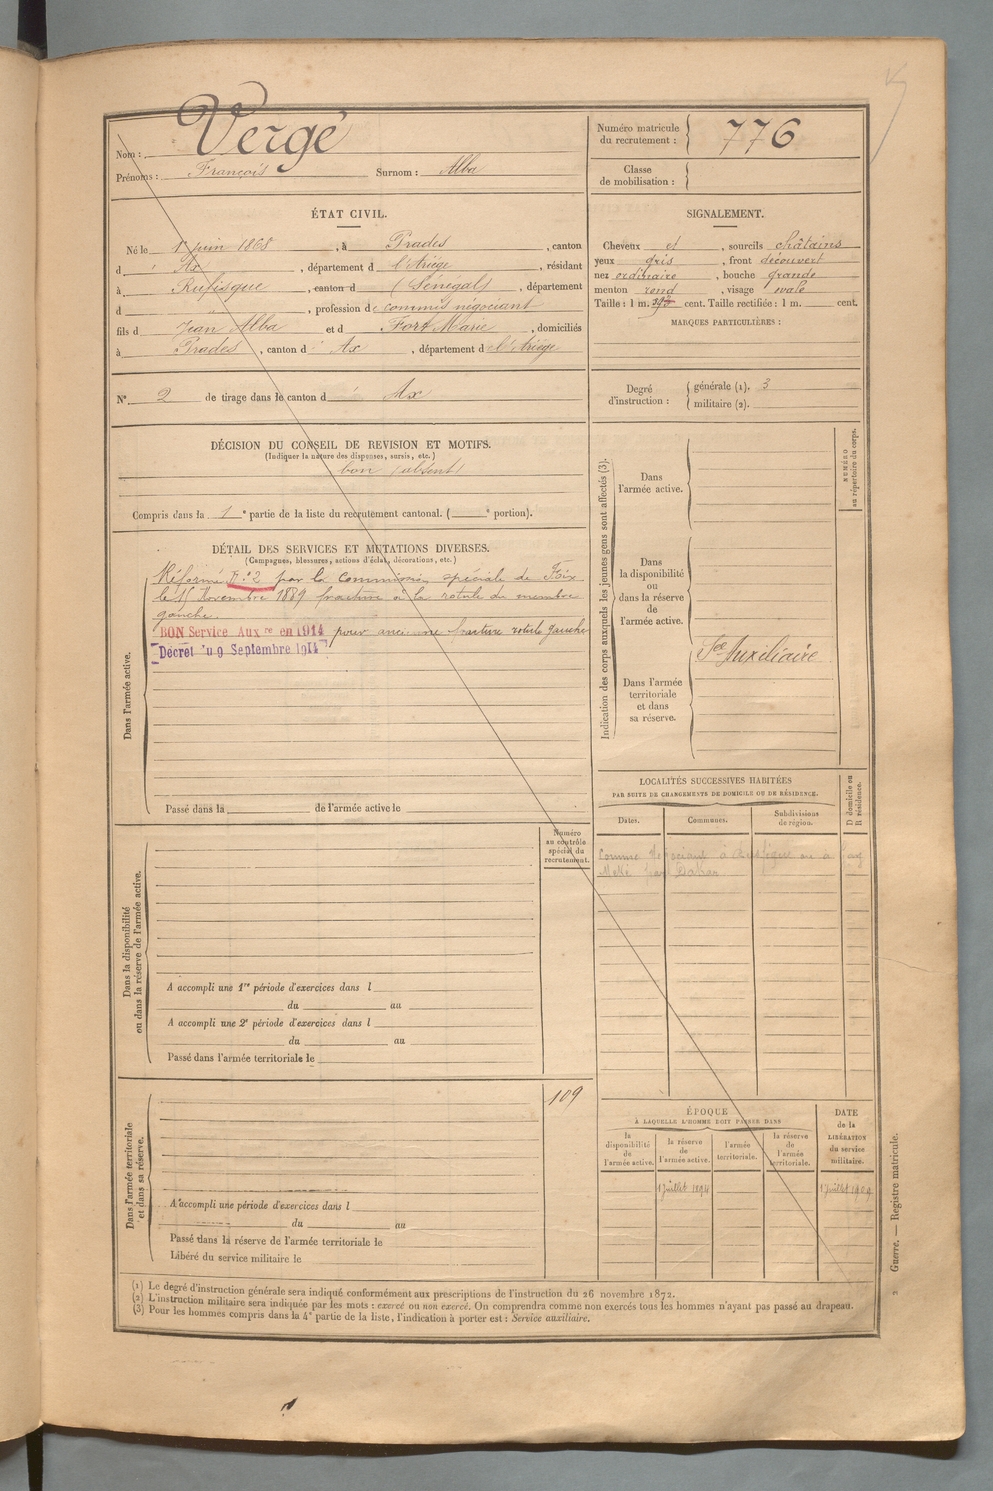 Nom : Vergé
Prénoms : François Surnom : Alba
Numéro matricule du recrutement : 776
Classe de mobilisation :
ÉTAT CIVIL.
Né le 1er juin 1868, à Prades, canton
d' Ax, département d l'Ariège, résidant
à Rufisque, canton d (Sénégal), département
d , profession de commis négociant
fils d Jean Alba et d Fort Marie, domiciliés
à Prades, canton d' Ax, département d l'Ariège
N° 2 de tirage dans le canton d Ax
SIGNALEMENT.
Cheveux et , sourcils châtains
yeux gris , front découvert
nez ordinaire , bouche grande
menton rond , visage ovale
Taille : 1 m. cent. Taille rectifiée : 1 m. cent.
MARQUES PARTICULIÈRES :
Degré d'instruction : générale (1). 3
militaire (2).
DÉCISION DU CONSEIL DE REVISION ET MOTIFS.
(Indiquer la nature des dispenses, sursis, etc.)
bon (absent)
Compris dans la 1e partie de la liste du recrutement cantonal. ( e portion).
DÉTAIL DES SERVICES ET MUTATIONS DIVERSES.
(Campagnes, blessures, actions d'éclat, décorations, etc.)
Dans l'armée active.
Réformé N°2 par la Commission spéciale de Foix
le 15 Novembre 1889 fracture à la rotule du membre
gauche.
BON Service Auxre en 1914 pour ancienne fracture rotule gauche
Décret du 9 Septembre 1914
Passé dans la de l'armée active le
Numéro au contrôle spécial du recrutement.
Dans la disponibilité ou dans la réserve de l'armée active.
A accompli une 1re période d'exercices dans l
du au
A accompli une 2e période d'exercices dans l
du au
Passé dans l'armée territoriale le
109
Dans l'armée territoriale et dans sa réserve.
A accompli une période d'exercices dans l
du au
Passé dans la réserve de l'armée territoriale le
Libéré du service militaire le
Indication des corps auxquels les jeunes gens sont affectés (3).
NUMÉRO au répertoire du corps.
Dans l'armée active.
Dans la disponibilité ou dans la réserve de l'armée active.
Dans l'armée territoriale et dans sa réserve.
Sce Auxiliaire
LOCALITÉS SUCCESSIVES HABITÉES
PAR SUITE DE CHANGEMENTS DE DOMICILE OU DE RÉSIDENCE.
Dates. Communes. Subdivisions de région. D domicile ou R résidence.
Comme Négociant à Rufisque ou à
par Dakar
ÉPOQUE
À LAQUELLE L'HOMME DOIT PASSER DANS
la disponibilité de l'armée active.
la réserve de l'armée active.
l'armée territoriale.
la réserve de l'armée territoriale.
DATE de la LIBÉRATION du service militaire.
1 Juillet 1894
1 Juillet 1909
(1) Le degré d'instruction générale sera indiqué conformément aux prescriptions de l'instruction du 26 novembre 1872.
(2) L'instruction militaire sera indiquée par les mots : exercé ou non exercé. On comprendra comme non exercés tous les hommes n'ayant pas passé au drapeau.
(3) Pour les hommes compris dans la 4e partie de la liste, l'indication à porter est : Service auxiliaire.
2 Guerre. — Registre matricule.